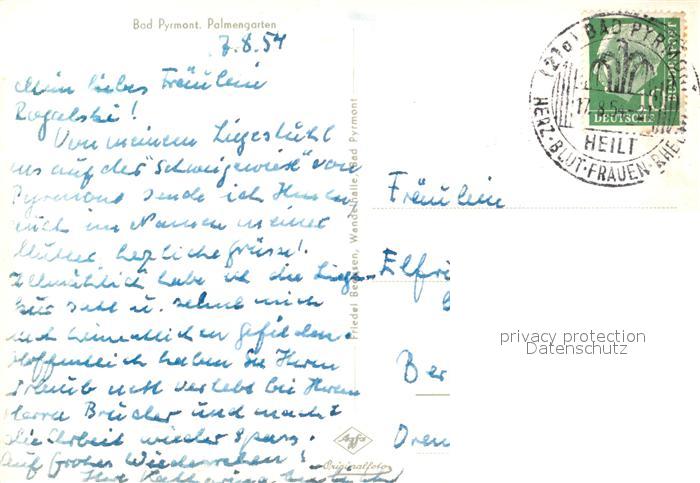 Bad Pyrmont. Palmengarten
7.8.54
Mein liebes Fräulein
Rogalski!
Von meinem Liegestuhl
aus auf der "Schweigewiese" von
Pyrmont sende ich Ihnen
auch im Namen meiner
Mutter herzliche Grüsse!
Allmählich habe ich die Liege-
kur satt u. sehne mich
nach heimatlichen Gefilden.
Hoffentlich haben Sie Ihren
Urlaub nett verlebt bei Ihrem
Herrn Bruder und macht
die Arbeit wieder Spass.
Auf frohes Wiedersehen!
Ihre
Friedel Beckssen, Wandelhalle, Bad Pyrmont
Agfa
Originalfoto
Fräulein
Elfri
Ber
Dren
(21a) BAD PYRMONT
17.8.54
HEILT
HERZ-BLUT-FRAUEN-RHEU
10
DEUTSCHE
BUNDESPOST
privacy protection
Datenschutz